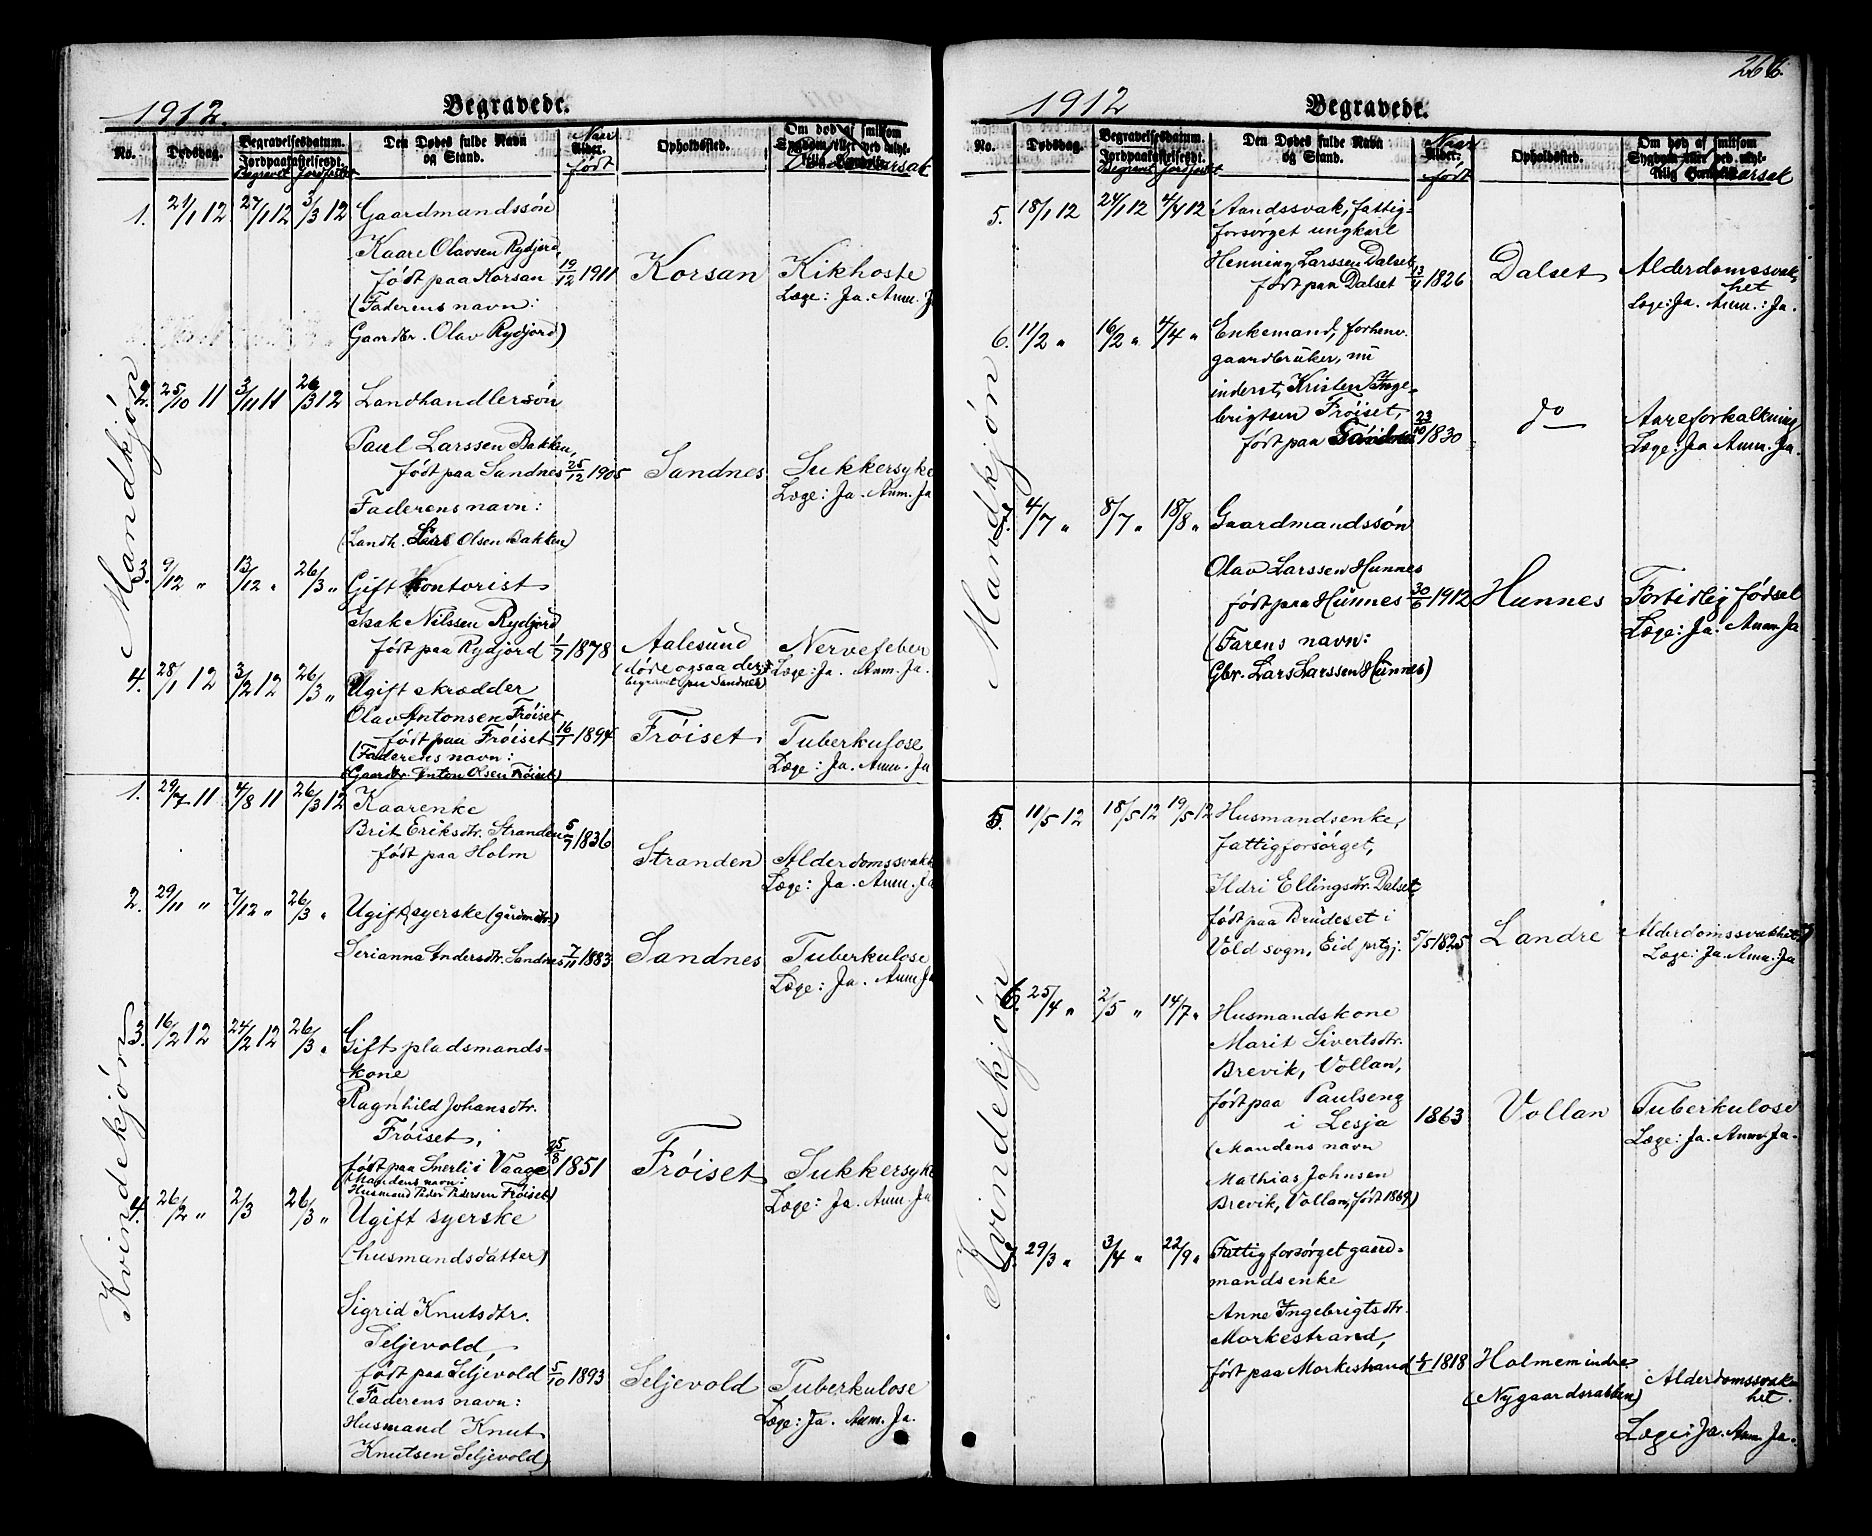 1912. Begravede.
No. Dødsdag. Begravelsesdatum. Jordpaakastelsesdt. Begravet Jordfæstet Den Dødes fulde Navn og Stand. Alder. Naar født Opholdssted. Om død af smitsom Sygdom eller ved ulykkelig Hændelse Dødsaarsak
Mandkjøn
1. 21/1 12 27/1 12 3/3 12 Gaardmandssøn
Kaare Olavsen Rydjord,
født paa Korsan 19/12 1911 Korsan Kikhoste
(Faderens navn: Læge: Ja. Anm. Ja
Gaardbr. Olav Rydjord)
2. 25/10 11 3/11 11 26/3 12 Landhandlersøn
Paul Larssen Bakken,
født paa Sandnes 25/12 1905 Sandnes Sukkersyke
Faderens navn: Læge: Ja. Anm. Ja
(Landh. Lars Olsen Bakken)
3. 9/12 " 13/12 " 26/3 " Gift kontorist
Isak Nilssen Rydjord
født paa Rydjord 1/7 1878 Aalesund Nervefeber
(døde ogsaa der; Læge: Ja. Anm. Ja.
begravet paa Sandnes)
4. 28/1 12 3/2 12 26/3 " Ugift skrædder
Olav Antonsen Frøiset
født paa Frøiset 16/7 1894 Frøiset Tuberkulose
(Faderens navn: Læge: Ja. Anm. Ja
Gaardbr. Anton Olsen Frøiset)
Kvindekjøn
1. 29/7 11 4/8 11 26/3 12 Kaarenke
Brit Eriksdtr. Stranden 5/7 1836
født paa Holm Stranden Alderdomssvakh
Læge: Ja. Anm. Ja
2. 29/11 " 7/12 " 26/3 " Ugift syerske (gårdmdtr.)
Serianna Andersdtr. Sandnes 7/11 1883 Sandnes Tuberkulose
Læge: Ja. Anm. Ja
3. 16/2 12 24/2 12 26/3 " Gift pladsmands-
kone
Ragnhild Johansdtr.
Frøiset,
født paa Snerli i Vaage 25/8 1851 Frøiset Sukkersyke
(Mandens navn: Læge: Ja. Anm. Ja
Husmand Peder Pedersen Frøiset)
4. 26/2 " 2/3 26/3 " Ugift syerske
(husmandsdatter)
Sigrid Knutsdtr.
Seljevold,
født paa Seljevold 5/10 1893 Seljevold Tuberkulose
(Faderens navn: Læge: Ja. Anm. Ja.
Husmand Knut
Knutsen Seljevold)
266.
1912 Begravede.
No. Dødsdag. Begravelsesdatum. Jordpaakastelsesdt. Begravet Jordfæstet Den Dødes fulde Navn og Stand. Alder. Naar født Opholdssted. Om død af smitsom Sygdom eller ved ulykkelig Hændelse
Mandkjøn
5. 18/1 12 24/1 12 4/4 12 Aandssvak, fattig-
forsørget ungkarl
Henning Larssen Dalset,
født paa Dalset 13/4 1826 Dalset Alderdomssvak-
het
Læge: Ja. Anm.: Ja.
6. 11/2 " 16/2 " 4/4 " Enkemand, forhenv.
gaardbruker, nu
inderst, Kristen Inge-
brigtsen Frøiset,
født paa 23/10 1830 do Aareforkalkning
Læge: Ja Anm. Ja.
7. 4/7 " 8/7 " 18/8 " Gaardmandssøn
Olav Larssen Hunnes
født paa Hunnes 30/6 1912 Hunnes Fortidlig fødsel
(Farens navn: Læge: Ja. Anm. Ja
Gbr. Lars Larssen Hunnes)
Kvindekjøn
5. 11/5 12 18/5 12 19/5 12 Husmandsenke,
fattigforsørget,
Ildri Ellingsdtr. Dalset,
født paa Brudeset i
Vold sogn, Eid prtgj. 5/5 1825 Landre Alderdomssvakhet
Læge: Ja. Anm. Ja
6. 25/4 " 2/5 " 14/7 " Husmandskone
Marit Sivertsdtr.
Brevik, Vollan,
født paa Paulseng
i Lesja 1863 Vollan Tuberkulose
(Mandens navn Læge: Ja. Anm. Ja.
Mathias Johnsen
Brevik, Vollan, født 1869)
7. 29/3 " 3/4 " 22/9 " Fattigforsørget gaard-
mandsenke
Anne Ingebrigtsdtr.
Morkestrand,
født paa Morkestrand 1818 Holmemindre
(Nygaardsrabben) Alderdomssvak-
het.
Læge: Ja. Anm. Ja.